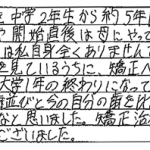 中学2年生から約5年
開始直後は母にやっ
は私自身全くありませんで
を見ているうちに、矯正へ
大学1年の終わりになって
並びと今の自分の歯を比
なと思いました。矯正治
ございました。